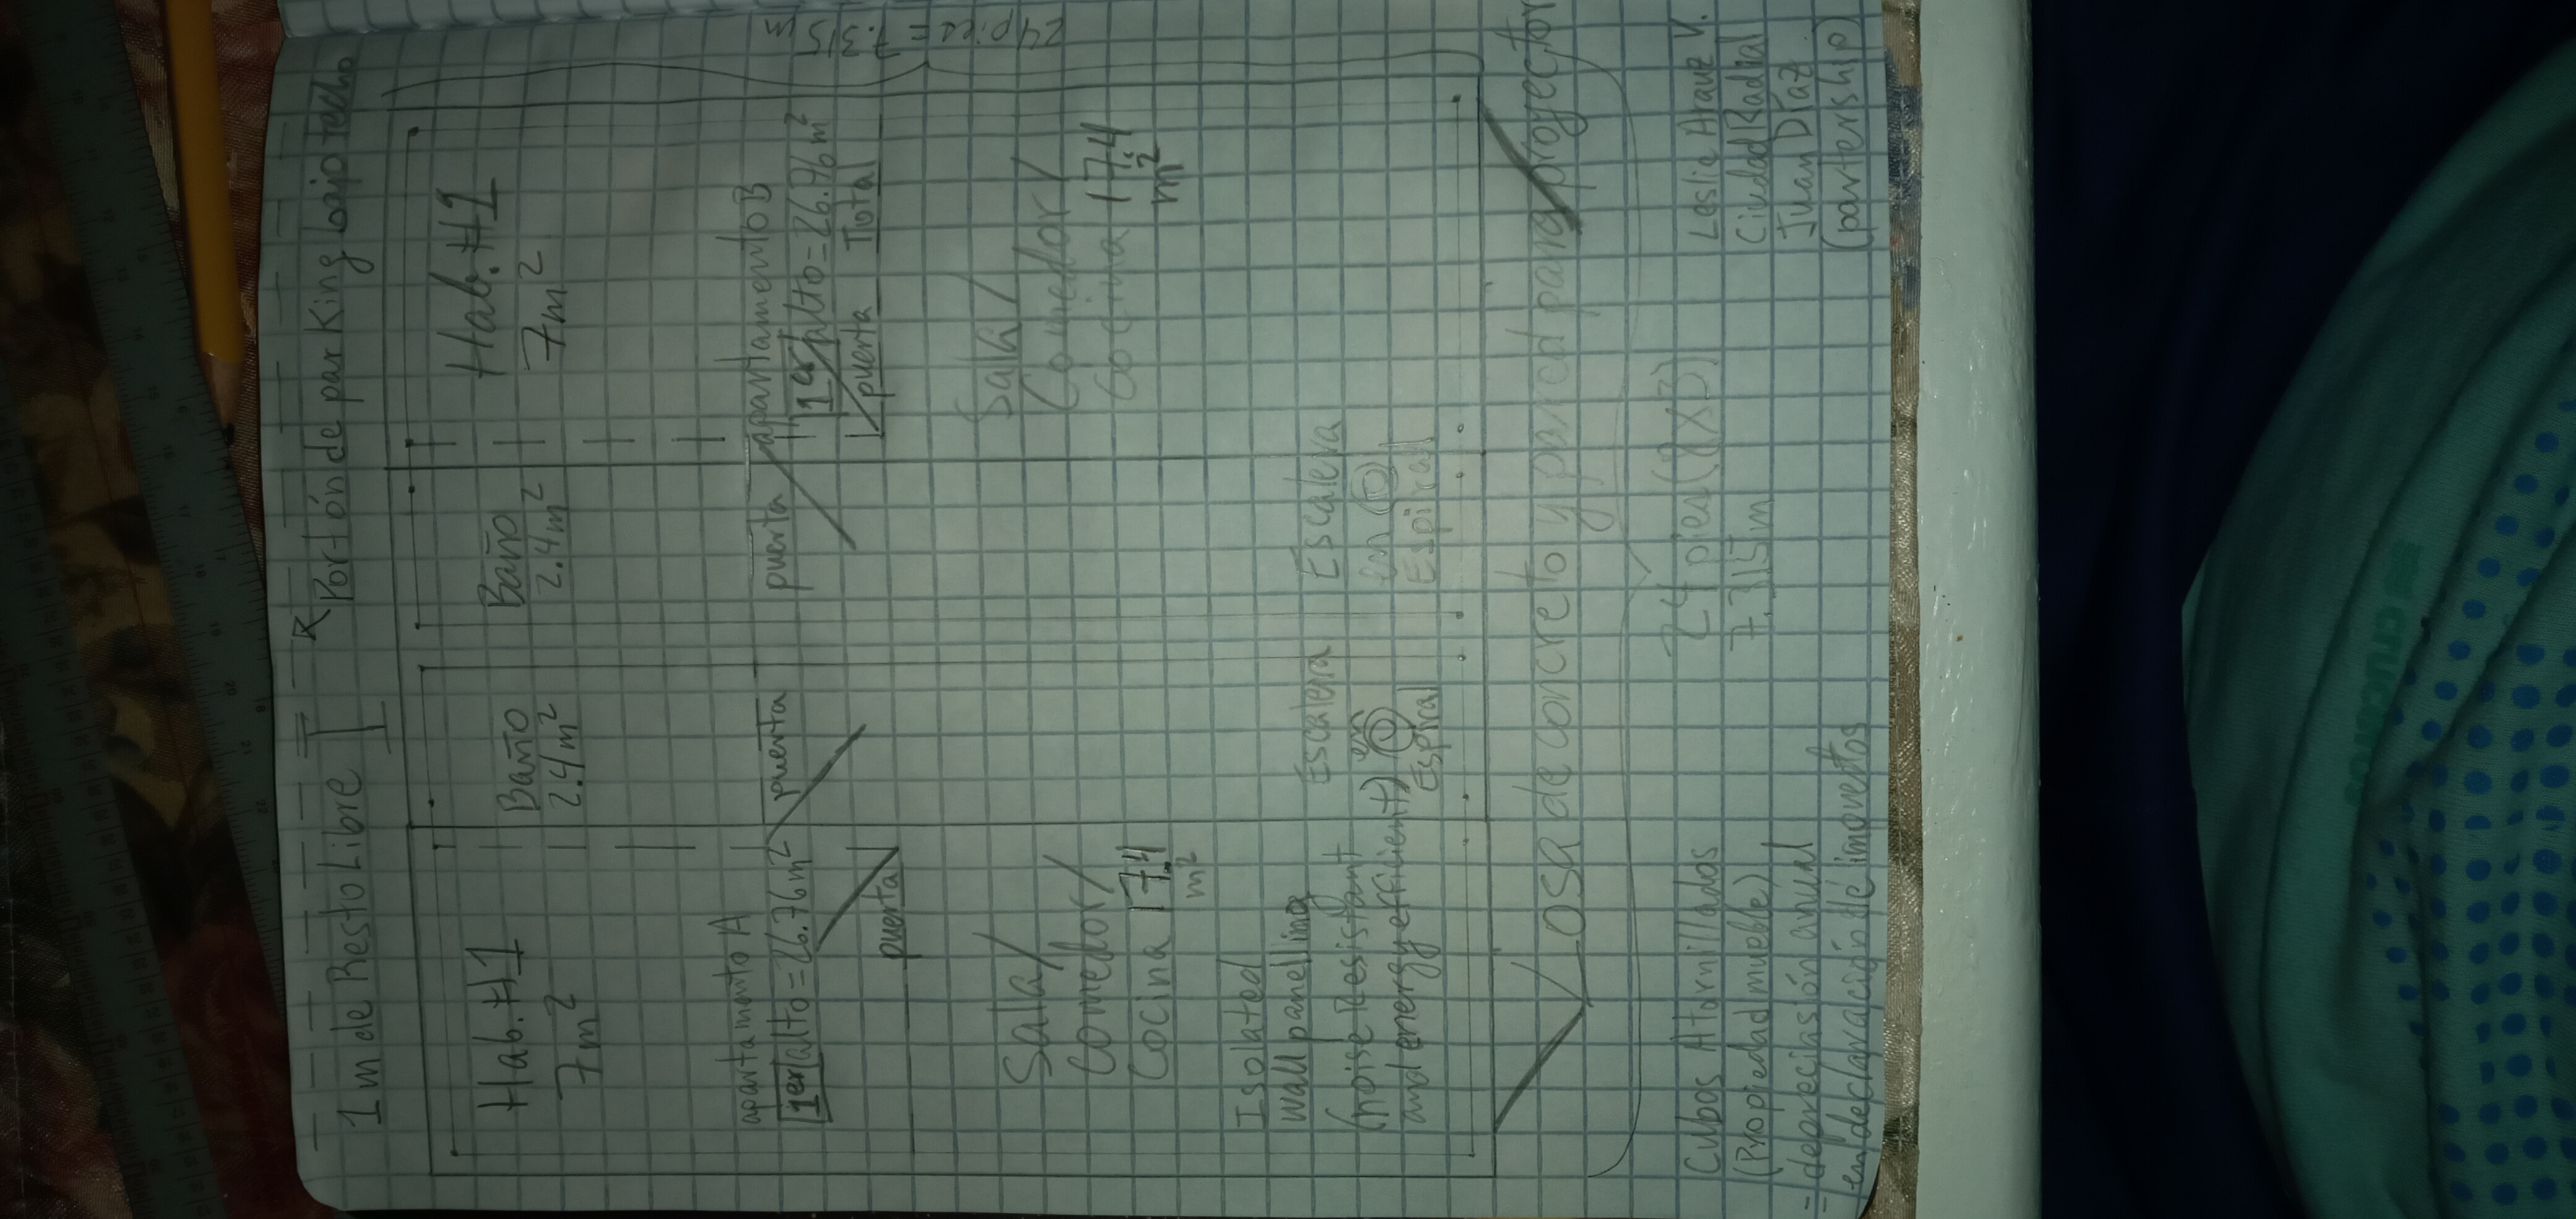 1m de Resto Libre
Portón de parKing bajo techo
Hab. #1
7m²
Baño
2.4m²
Baño
2.4m²
Hab. #1
7m²
apartamento A
1er alto = 26.76m²
puerta
puerta
puerta
apartamento B
1er alto = 26.76m²
puerta Total
24 pies = 7.315m
Sala/
comedor/
Cocina 17.4
m²
Sala/
Comedor/
Cocina 17.4
m²
Isolated
wall panelling
(noise Resistant
and energy efficient)
Escalera
en
Espiral
Escalera
en
Espiral
Losa de concreto y pared para proyector
24 pies (8x3)
7.315m
Cubos Atornillados
(Propiedad mueble)
= depreciasión anual
en declaración de impuestos
Leslie Arauz V.
Ciudad Radial
Juan Díaz
(partership)